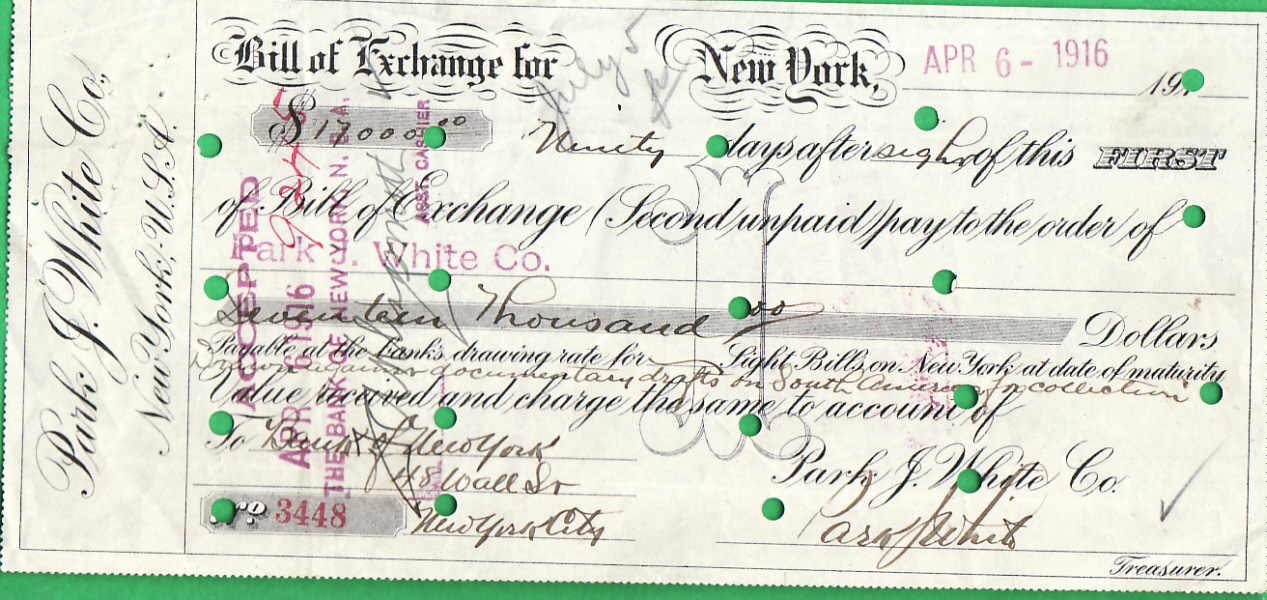 Park J. White Co.,
New York, U.S.A.
Bill of Exchange for New York, APR 6 - 1916 19
$17000.00 Ninety days after sight of this FIRST
of Bill of Exchange (Second unpaid) pay to the order of
Park J. White Co.
Seventeen Thousand 00 Dollars
Payable at the banks drawing rate for Sight Bills on New York at date of maturity
Drawn against documentary drafts on South America for collection
Value received and charge the same to account of
To Bank of New York
48 Wall St
New York City
No 3448
Park J. White Co.
Park J White
Treasurer.
ACCEPTED
APR 1916
THE BANK OF NEW YORK N. B. A.
ASST. CASHIER
July 5